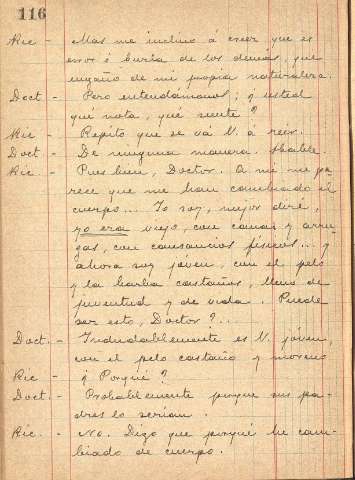 116
Ric - Mas me inclino á creer que es
error ó burla de los demás, que
engaño de mi propia naturaleza.
Doct - Pero entendámonos; ¿ usted
qué nota, qué siente ?
Ric - Repito que se vá V. á reir.
Doct - De ninguna manera. Hable.
Ric - Pues bien, Doctor. A mi me pa-
rece que me han cambiado el
cuerpo... Yo soy, mejor diré,
yo era viejo, con canas y arru-
gas, con cansancios físicos... y
ahora soy jóven, con el pelo
y la barba castaños, lleno de
juventud y de vida. Puede
ser esto, Doctor ?...
Doct. - Indudablemente es V. jóven,
con el pelo castaño y moreno
Ric - ¿ Porqué ?
Doct. - Probablemente porque sus pa-
dres lo serian.
Ric. - No. Digo que porqué he cam-
biado de cuerpo.